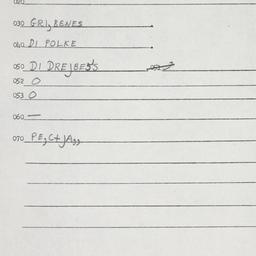 030 GRI3BENES
040 DI POLKE
050 DI DREJBE3'S
052 O
053 O
060 —
070